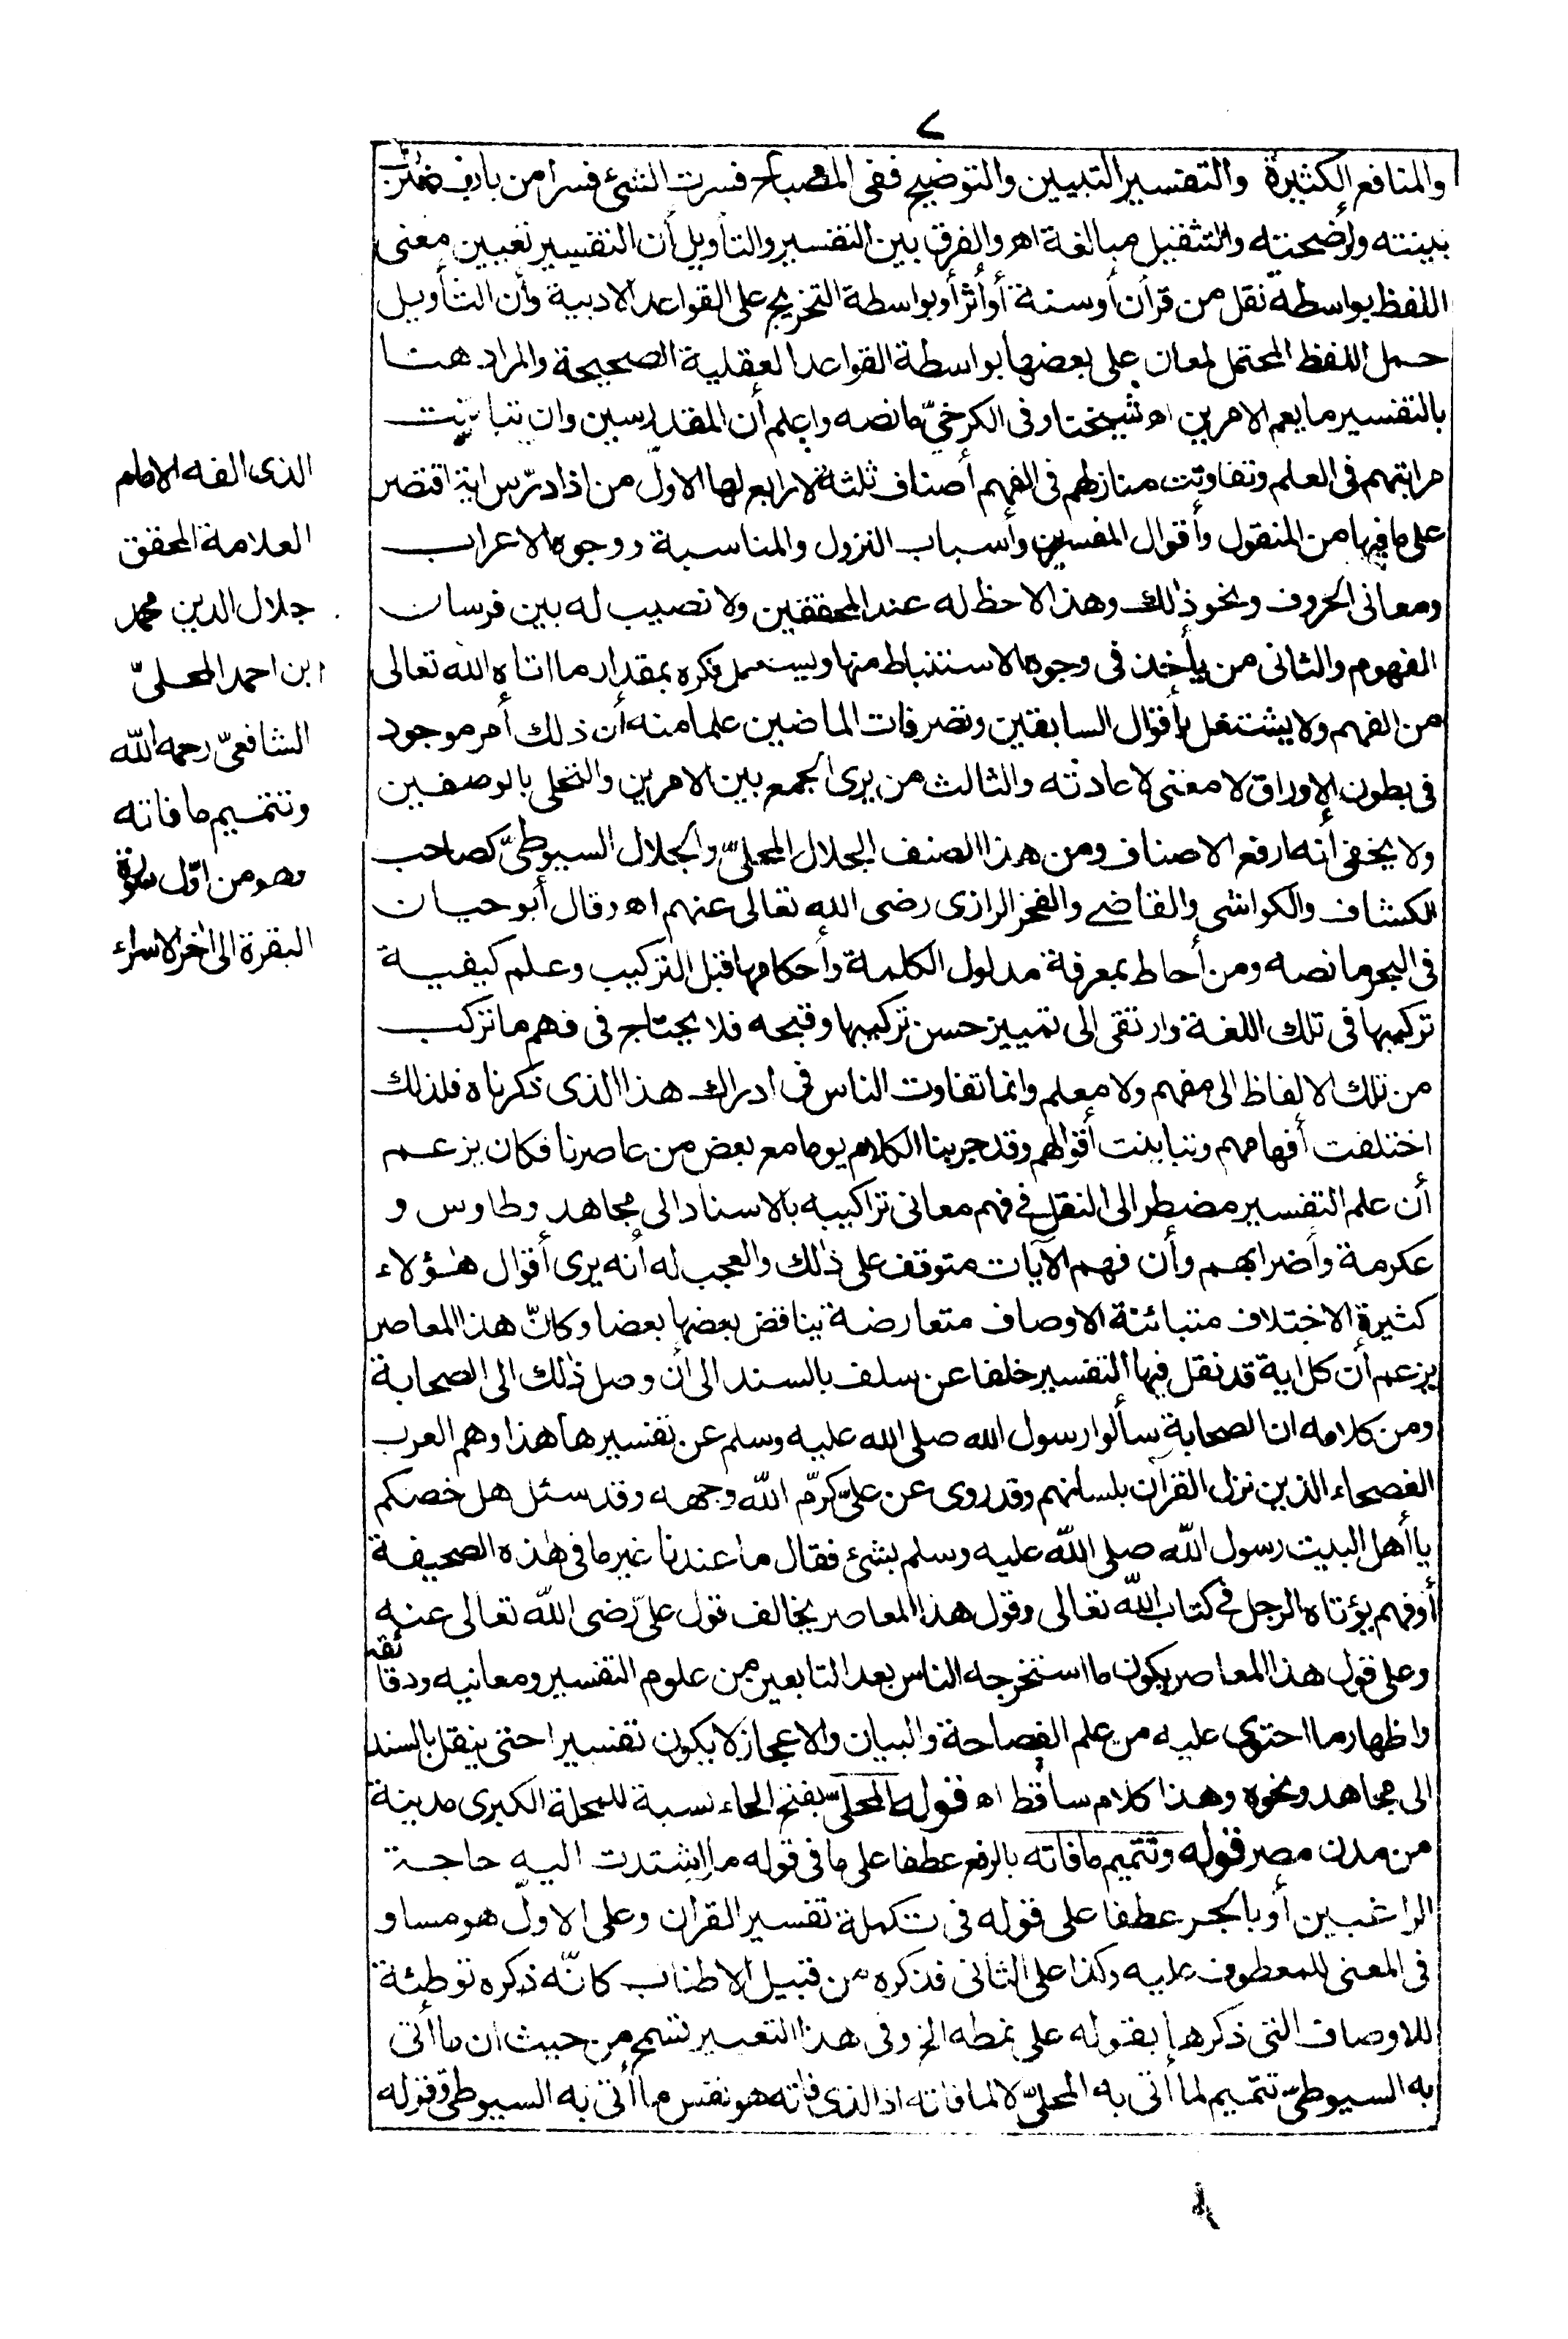 ٧
والمنافع الكثيرة والتفسير التبيين والتوضيح ففى المصباح فسرت الشئ فسرا من باب ضرب
بينته وأوضحته والتثقيل مبالغة اه والفرق بين التفسير والتأويل أن التفسير تعيين معنى
اللفظ بواسطة نقل من قرآن أو سنة أو أثر أو بواسطة التخريج على القواعد الادبية وأن التأويل
حمل اللفظ المحتمل لمعان على بعضها بواسطة القواعد العقلية الصحيحة والمراد هنا
بالتفسير ما يعم الامرين اه شيخنا وفى الكرخىّ ما نصه واعلم أن المفسرين وان تباينت
مراتبهم فى العلم وتفاوتت منازلهم فى الفهم أصناف ثلثة لا رابع لها الاوّل من اذا درّس اية اقتصر
على ما فيها من المنقول وأقوال المفسرين وأسباب النزول والمناسبة ووجوه الاعراب
ومعانى الحروف ونحو ذلك وهذا لا حظ له عند المحققين ولا نصيب له بين فرسان
الفهوم والثانى من يأخذ فى وجوه الاستنباط منها ويستعمل فكره بمقدار ما اتاه الله تعالى
من الفهم ولا يشتغل بأقوال السابقين وتصرفات الماضين علما منه أن ذلك أمر موجود
فى بطون الاوراق لا معنى لاعادته والثالث من يرى الجمع بين الامرين والتحلى بالوصفين
ولا يخفى انه ارفع الاصناف ومن هذا الصنف الجلال المحلىّ والجلال السيوطىّ كصاحب
الكشاف والكواشى والقاضى والفخر الرازى رضى الله تعالى عنهم اه وقال أبو حيان
فى البحر ما نصه ومن أحاط بمعرفة مدلول الكلمة وأحكامها قبل التركيب وعلم كيفية
تركيبها فى تلك اللغة وارتقى الى تمييز حسن تركيبها وقبحه فلا يحتاج فى فهم ما تركب
من تلك الالفاظ الى مفهم ولا معلم وانما تفاوت الناس فى ادراك هذا الذى ذكرناه فلذلك
اختلفت أفهامهم وتباينت أقوالهم وقد جرينا الكلام يوما مع بعض من عاصرنا فكان يزعم
أن علم التفسير مضطر الى النقل فى فهم معانى تراكيبه بالاسناد الى مجاهد وطاوس و
عكرمة وأضرابهم وأن فهم الآيات متوقف على ذلك والعجب له أنه يرى أقوال هؤلاء
كثيرة الاختلاف متبائنة الاوصاف متعارضة يناقض بعضها بعضا وكانّ هذا المعاصر
يزعم أن كل اية قد نقل فيها التفسير خلفا عن سلف بالسند الى أن وصل ذلك الى الصحابة
ومن كلامه ان الصحابة سألوا رسول الله صلى الله عليه وسلم عن تفسيرها هذا وهم العرب
الفصحاء الذين نزل القرآن بلسانهم وقد روى عن علىّ كرّم الله وجهه وقد سئل هل خصكم
يا أهل البيت رسول الله صلى الله عليه وسلم بشئ فقال ما عندنا غير ما فى هذه الصحيفة
أو فهم يؤتاه الرجل فى كتاب الله تعالى وقول هذا المعاصر يخالف قول علىّ رضى الله تعالى عنه
وعلى قول هذا المعاصر يكون ما استخرجه الناس بعد التابعين من علوم التفسير ومعانيه ودقائقه
واظهار ما احتوى عليه من علم الفصاحة والبيان والاعجاز لا يكون تفسيرا حتى ينقل بالسند
الى مجاهد ونحوه وهذا كلام ساقط اه قوله المحلىّ بفتح الحاء نسبة للمحلة الكبرى مدينة
من مدن مصر قوله وتتميم ما فاته بالرفع عطفا على ما فى قوله ما اشتدت اليه حاجة
الراغبين أو بالجر عطفا على قوله فى تكملة تفسير القران وعلى الاوّل هو مساو
فى المعنى للمعطوف عليه وكذا على الثانى فذكره من قبيل الاطناب كانّه ذكره توطئة
للاوصاف التى ذكرها بقوله على نمطه الخ وفى هذا التعبير تسمح من حيث ان ما أتى
به السيوطىّ تتميم لما أتى به المحلىّ لا لما فاته اذ الذى فاته هو نفس ما أتى به السيوطى وقوله
الذى الفه الامام
العلامة المحقق
جلال الدين محمد
ابن احمد المحلىّ
الشافعىّ رحمه الله
وتتميم ما فاته
وهو من اوّل سورة
البقرة الى اخر الاسراء